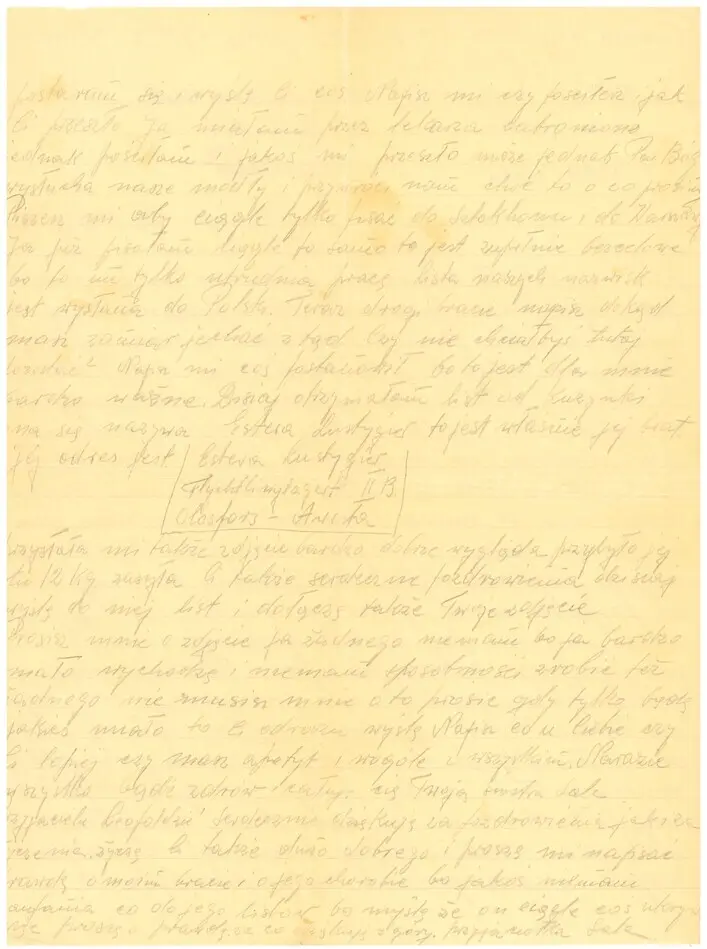 postaram się i wyślę Ci coś Napisz mi czy pościłeś i jak
Ci przeszło Ja miałam przez lekarza zabronione
jednak pościłam i jakoś mi przeszło może jednak Pan Bóg
wysłucha nasze modły i przywróci nam choć to o co prosimy
Piszesz mi aby ciągle tylko pisać do Sztokholmu i do Warszawy
Ja już pisałam ciągle to samo to jest zupełnie bezcelowe
bo to im tylko utrudnia pracę lista naszych nazwisk
jest wysłana do Polski. Teraz drogi bracie napisz dokąd
masz zamiar jechać z tąd Czy nie chciałbyś tutaj
Napisz mi coś postanowił bo to jest dla mnie
bardzo ważne. Dzisiaj otrzymałam list od kuzynki
ona się nazywa Estera Lustygier to jest właśnie jej brat
jej adres jest Estera Lustygier
II B.
Avesta
przysłała mi także zdjęcie bardzo dobrze wygląda przybyło jej
tu 12 Kg zasyła Ci także serdeczne pozdrowienia dzisiaj
wyślę do niej list i dołączę także Twoje zdjęcie
Prosisz mnie o zdjęcie ja żadnego niemam bo ja bardzo
mało wychodzę i niemam sposobności zrobić też
żadnego nie musisz mnie o to prosić gdy tylko będę
jakieś miała to Ci odrazu wyślę Napisz co u Ciebie czy
Ci lepiej czy masz apetyt i wogóle o wszystkim. Narazie
wszystko bądź zdrów całuję cię Twoja siostra Lola
serdecznie dziękuję za pozdrowienia jak i za
życzenia. życzę Ci także dużo dobrego i proszę mi napisać
prawdę o moim bracie i o jego chorobie bo jakoś niemam
zaufania co do jego listów bo myślę że on ciągle coś ukrywa
proszę o prawdę za co dziękuję z góry. przyjaciółka Lola